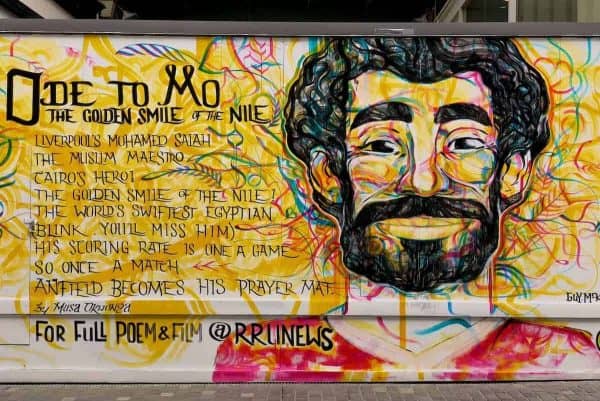 ODE TO MO
THE GOLDEN SMILE OF THE NILE
LIVERPOOL'S MOHAMED SALAH
THE MUSLIM MAESTRO
CAIRO'S HERO!
THE GOLDEN SMILE OF THE NILE!
THE WORLD'S SWIFTEST EGYPTIAN
(BLINK YOU'LL MISS HIM)
HIS SCORING RATE IS ONE A GAME
SO ONCE A MATCH
ANFIELD BECOMES HIS PRAYER MAT.
By MUSA OKWONGA
FOR FULL POEM & FILM @RRUNEWS
GUY MCK